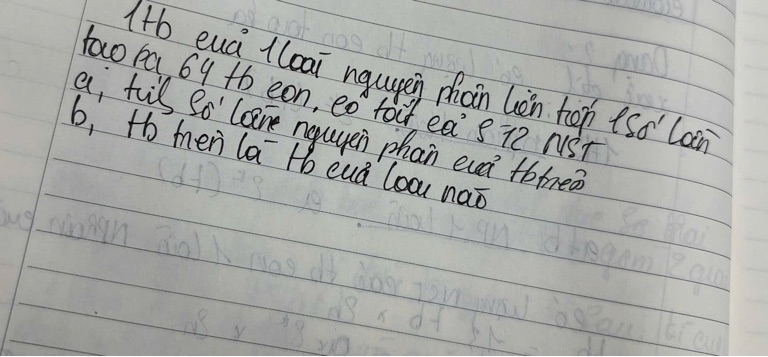 1tb của 1 loài nguyên phân liên tiếp 1 số lần
tạo ra 64 tb con, có tất cả 512 NST
a, tìm số lần nguyên phân của tb trên
b, tb trên là tb của loài nào